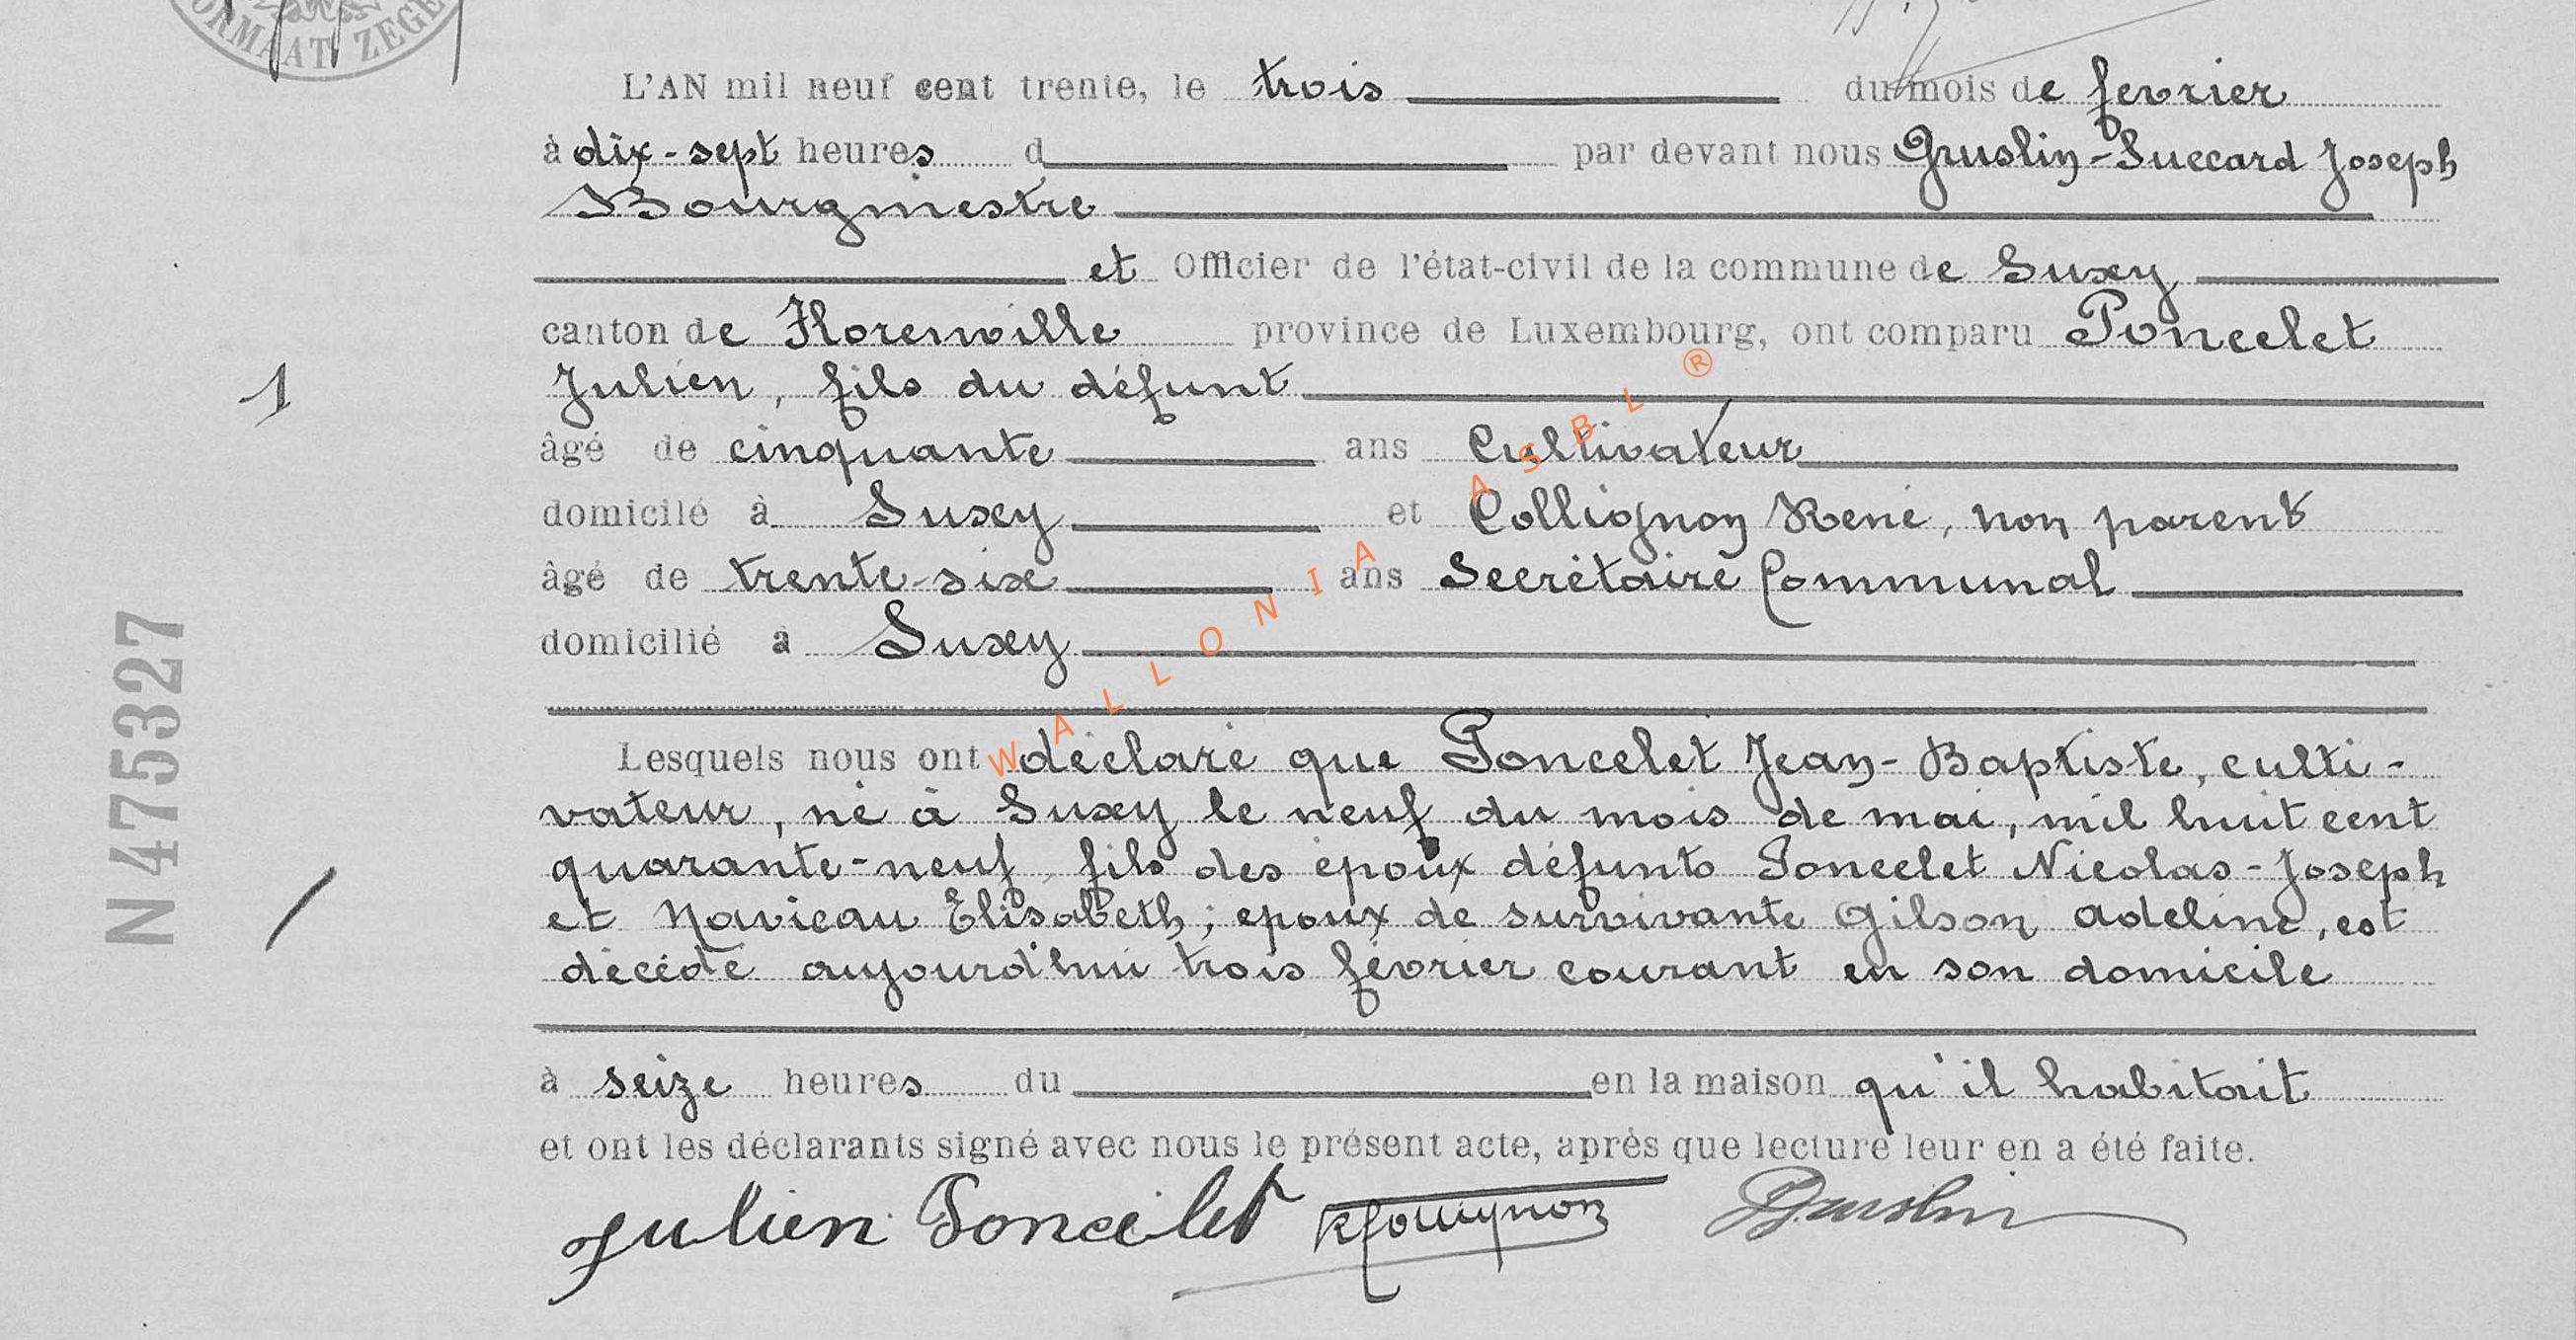 ORMAAT ZEGE
L'AN mil neuf cent trente, le trois du mois de fevrier
à dix-sept heures d par devant nous Gruslin-Succard Joseph
Bourgmestre
et Officier de l'état-civil de la commune de Suxy
canton de Florenville province de Luxembourg, ont comparu Poncelet
1 Julien, fils du défunt
âgé de cinquante ans Cultivateur
domicilé à Suxy et Collignon René, non parent
âgé de trente-six ans Secrétaire Communal
domicilié à Suxy
WALLONIA ASBL ®
N 475327
Lesquels nous ont déclaré que Poncelet Jean-Baptiste, culti-
vateur, né à Suxy le neuf du mois de mai, mil huit cent
quarante-neuf, fils des époux défunts Poncelet Nicolas-Joseph
et Navieau Elisabeth; epoux de survivante Gilson Adeline, est
décédé aujourd'hui trois février courant en son domicile
à seize heures du en la maison qu'il habitait
et ont les déclarants signé avec nous le présent acte, après que lecture leur en a été faite.
Julien Poncelet RCollignon Gruslin